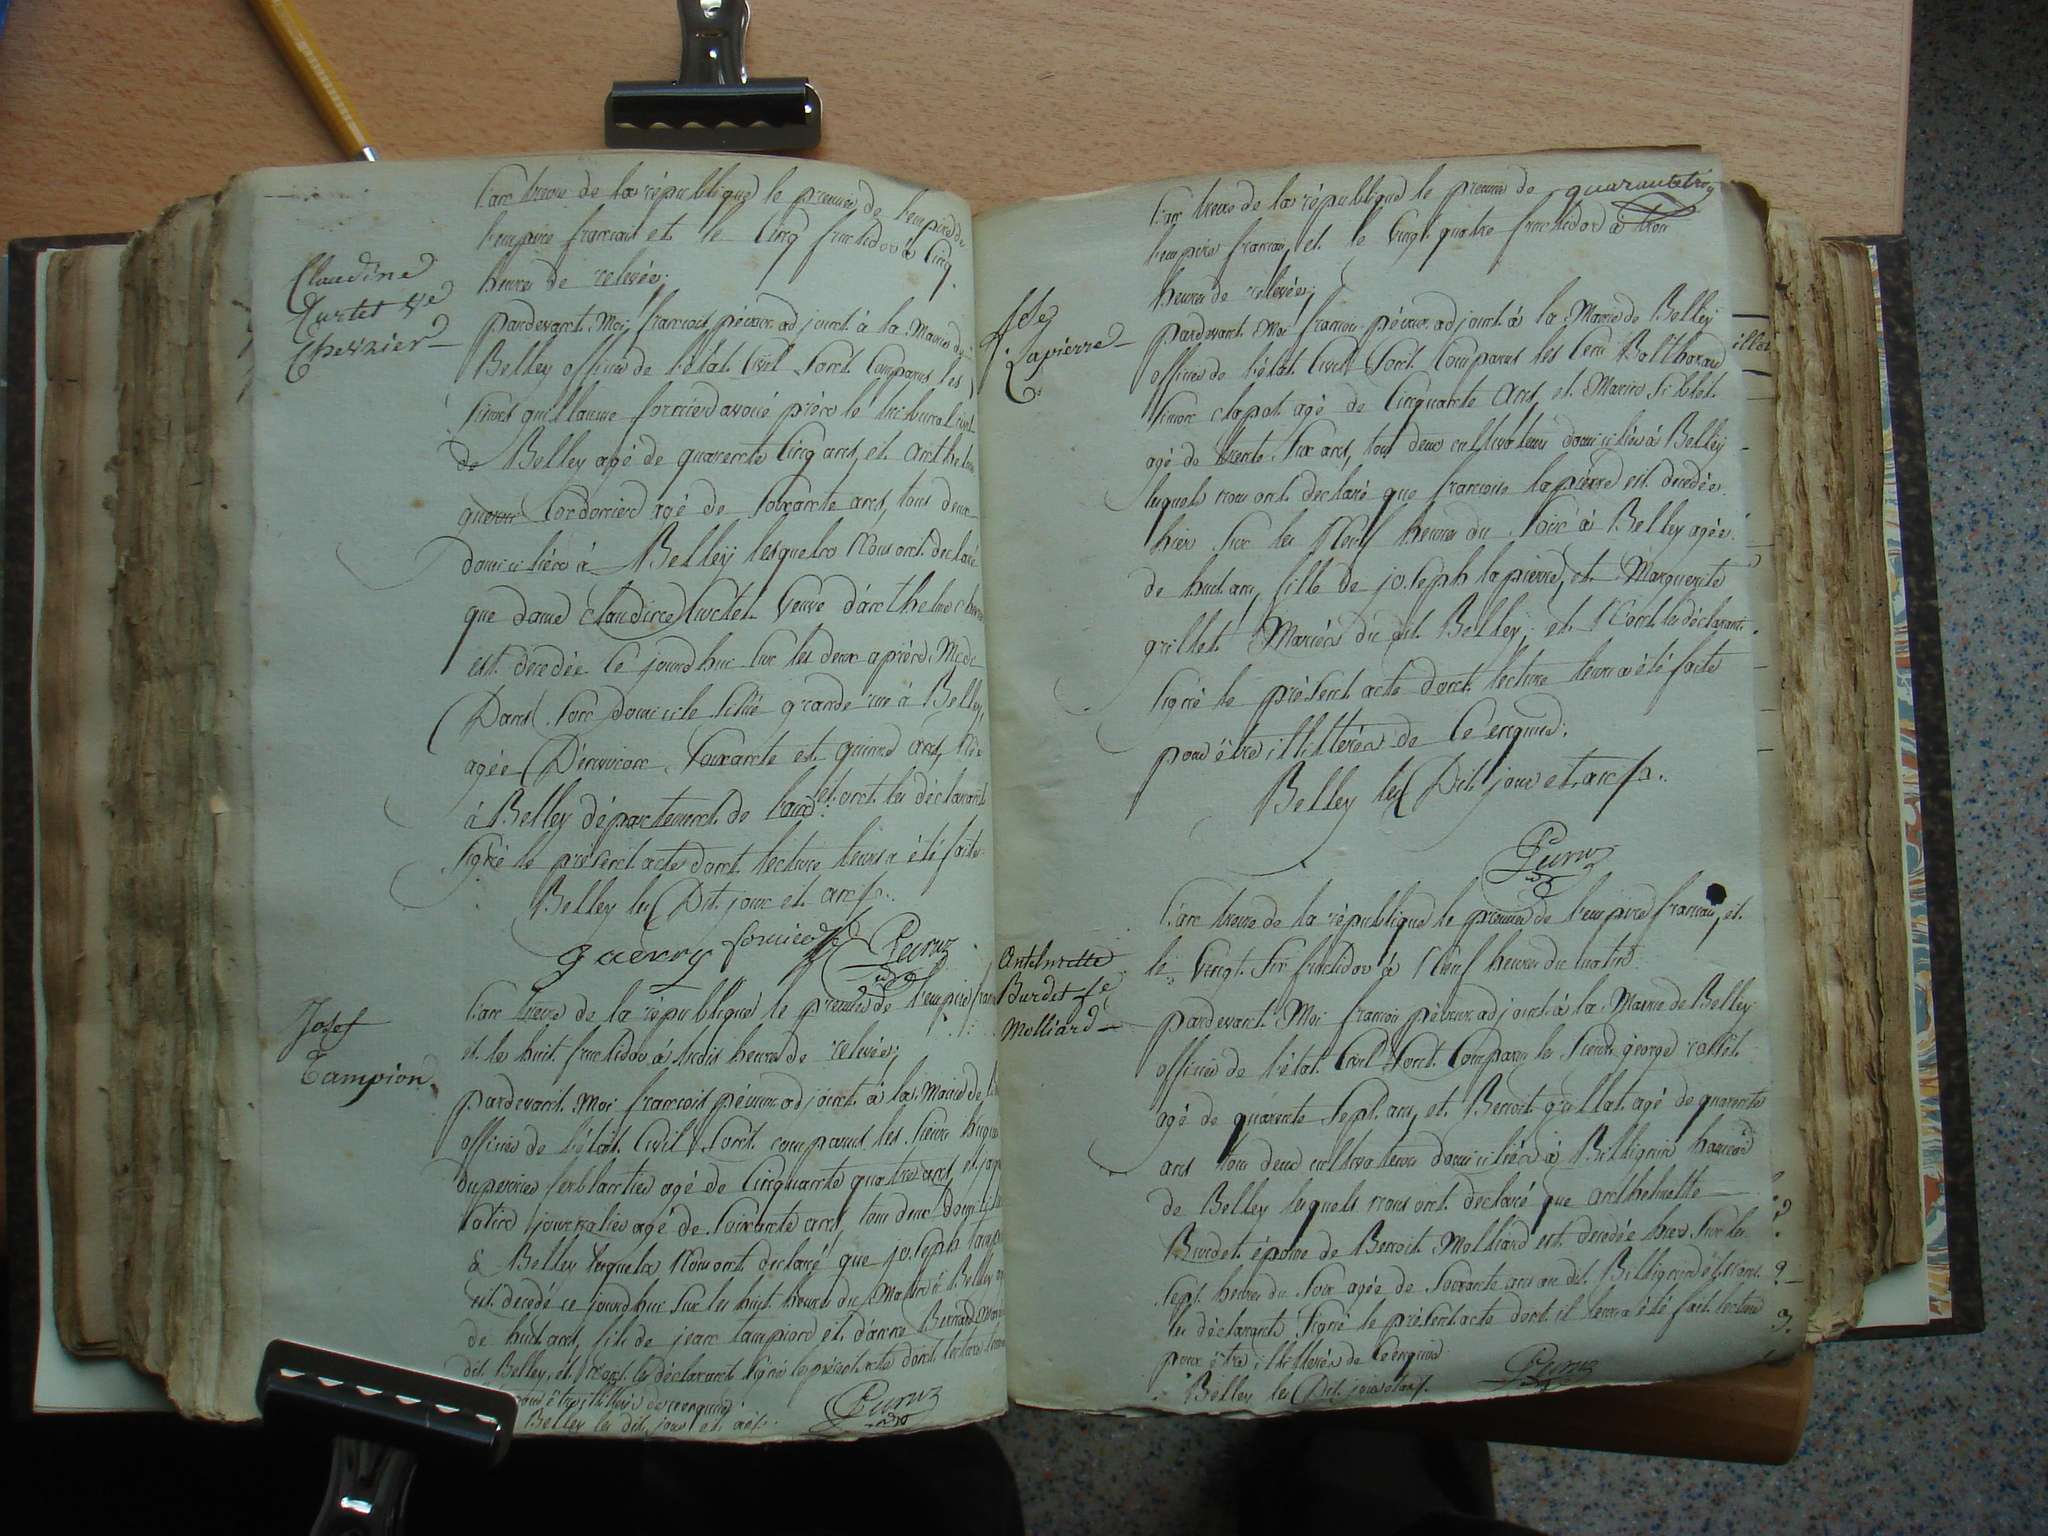 L'an treize de la république le premier de l'empire de
l'empire francais et le Cinq fructidor à Cinq
heures de relevée;
Claudine
Curtet Ve
Chevrier
pardevant Moi francois pévraz adjoint à la Mairie de
Belley officier de l'état Civil sont Comparus les
sieurs guillaume fornier avoué près le tribunal
de Belley agé de quarente Cinq ans, et anthelme
Cordonnier agé de soixante ans, tous deux
domiciliés à Belley lesquels Nous ont declaré
que dame claudine Curtet veuve d'anthelme
est decedée Ce jourd'hui sur les deux
Dans son domicile situé grande rue à Belley,
agée D'environ soixante et quinze ans, née
à Belley département de l'ain. et ont les déclarants
signé le présent acte dont lecture leur a été faite
Belley les Dit jour et an
guerry fornier
Josef
Tampion
L'an treize de la république le premier de l'empire
et le huit fructidor à trois heures de relevée;
pardevant Moi francois pévraz adjoint à la Mairie de
officier de l'état Civil sont comparus les sieurs
ferblantier agé de Cinquante quatre ans, et
journalier agé de soixante ans, tous deux
à Belley lesquels Nous ont declaré que joseph
est decedé ce jourd'hui sur les huit heures du Matin à Belley
de huit ans, fils de jean tampion et d'anne Bernard
dit Belley, et n'ont les déclarants signé le présent acte dont lecture
pour être illitterés de ce enquis
Belley les dit jour et an
quarante trois
L'an treize de la république le premier de
l'empire francais, et le vingt quatre fructidor à trois
heures de relevée;
fse
Lapierre
pardevant Moi francois pévraz adjoint à la Mairie de Belley
officier de l'état Civil sont Comparus les sieurs Balthazard
simon clapot agé de Cinquante ans, et Marin siblet
agé de trente six ans, tous deux cultivateurs domiciliés à Belley
lesquels nous ont declaré que francoise lapierre est decedée
hier sur les Neuf heures du soir à Belley agée
de huit ans, fille de joseph lapierre, et Marguerite
grillet Mariés du dit Belley, et n'ont les déclarants
signé le présent acte dont lecture leur a été faite
pour être illitterés de Ce enquis.
Belley les Dit jour et an
L'an treize de la république le premier de l'empire francais, et
le vingt six fructidor à Neuf heures du matin
Antelmette
Burdet fe
Molliard
pardevant Moi francois pévraz adjoint à la Mairie de Belley
officier de l'état Civil sont Comparus les sieurs george
agé de quarente sept ans, et Benoit agé de quarente
ans tous deux cultivateurs domiciliés à Billignin hameau
de Belley lesquels nous ont declaré que anthelmette
Burdet épouse de Benoit Molliard est decedée hier sur les
sept heures du soir agée de soixante ans au dit Billignin et n'ont
les déclarants signé le présent acte dont il leur a été fait lecture
pour être illitterés de Ce enquis
Belley les Dit jour et an